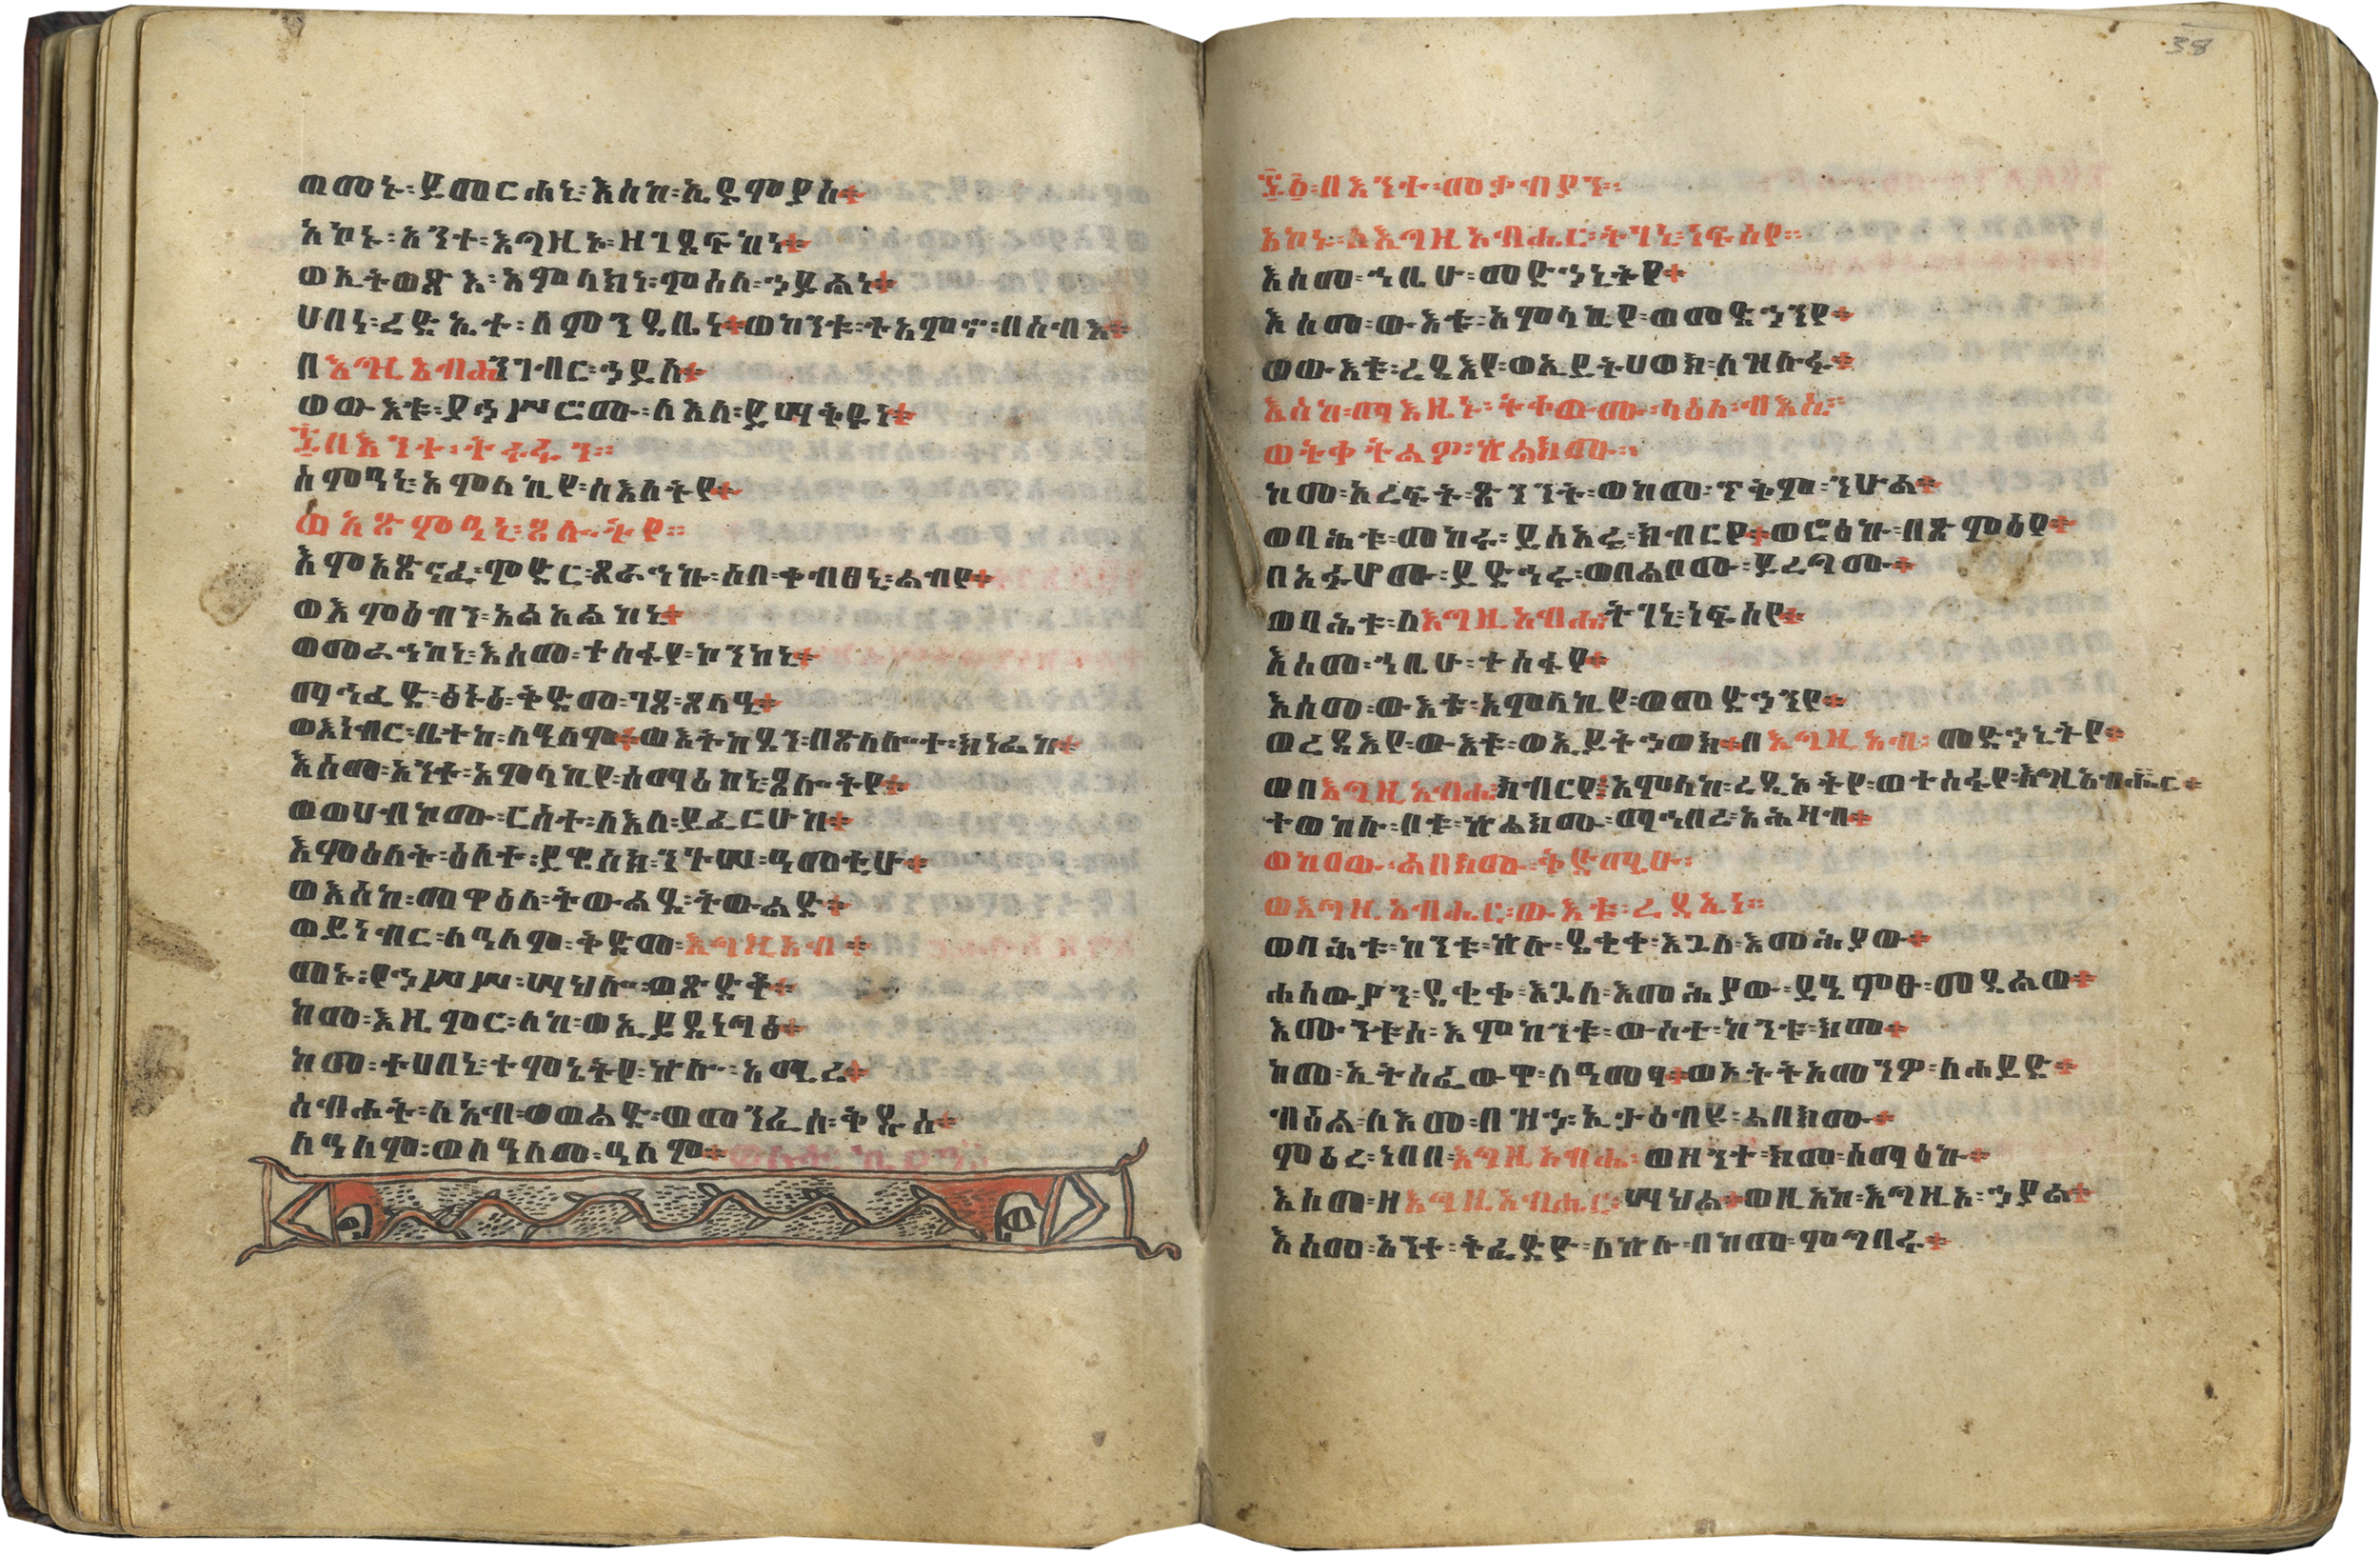 ወመኑ፡ ይመርሐኒ፡ እስከ፡ ኢዶምያስ።
አኮኑ፡ አንተ፡ እግዚኦ፡ ዘገደፍከነ።
ወኢትወፅእ፡ አምላክነ፡ ምስለ፡ ኃይልነ።
ሀበነ፡ ረድኤተ፡ በምንዳቤነ። ወከንቱ፡ ተአምኖ፡ በሰብእ።
በእግዚአብሔ፡ ንገብር፡ ኃይለ።
ወውእቱ፡ ያኀሥሮሙ፡ ለእለ፡ ይሣቅዩነ።
፷በእንተ፡ ትሩፋን።
ስምዓኒ፡ አምላኪየ፡ ስእለትየ።
ወአፅምዓኒ፡ ጸሎትየ።
እምአጽናፈ፡ ምድር፡ ጸራኅኩ፡ ሶበ፡ ቀብፀኒ፡ ልብየ።
ወእምዕብን፡ አልዐልከኒ።
ወመራኅከኒ፡ እስመ፡ ተስፋየ፡ ኮንከኒ።
ማኅፈድ፡ ፅኑዕ፡ ቅድመ፡ ገጸ፡ ጸላዒ።
ወእነብር፡ ቤተከ፡ ለዓለም። ወእትከደን፡ በጽላሎተ፡ ክነፊከ።
እስመ፡ አንተ፡ አምላኪየ፡ ሰማዕከኒ፡ ጸሎትየ።
ወወሀብኮሙ፡ ርስተ፡ ለእለ፡ ይፈርሁከ።
እምዕለት፡ ዕለተ፡ ይዌስክ፡ ንጉሥ፡ ዓመቲሁ።
ወእስከ፡ መዋዕለ፡ ትውልደ፡ ትውልድ።
ወይነብር፡ ለዓለም፡ ቅድመ፡ እግዚአብ።
መኑ፡ የኃሥሥ፡ ሣህሎ፡ ወጽድቆ።
ከመ፡ እዚምር፡ ለከ፡ ወኢይደነግፅ።
ከመ፡ ተሀበኒ፡ ተምኔትየ፡ ኵሎ፡ አሚረ።
ስብሐት፡ ለአብ፡ ወወልድ፡ ወመንፈስ፡ ቅዱስ።
ለዓለም፡ ወለዓለመ፡ ዓለም።
፷፩፡ በእንተ፡ መቃብያን።
አኮኑ፡ ለእግዚአብሔር፡ ትገኒ፡ ነፍስየ።
እስመ፡ ኀቤሁ፡ መድኀኒትየ።
እስመ፡ ውእቱ፡ አምላኪየ፡ ወመድኀንየ።
ወውእቱ፡ ረዳእየ፡ ወኢይትሀወክ፡ ለዝሉፉ።
እስከ፡ ማእዜኑ፡ ትቀውሙ፡ ላዕለ፡ ብእሲ።
ወትቀትልዎ፡ ኵልክሙ።
ከመ፡ አረፍት፡ ጽንንት፡ ወከመ፡ ጥቅም፡ ንሁል።
ወባሕቱ፡ መከሩ፡ ይስአሩ፡ ክብርየ። ወሮፅኩ፡ በጽምዕየ።
በአፉሆሙ፡ ይድኅሩ፡ ወበልቦሙ፡ ይረግሙ።
ወባሕቱ፡ ለእግዚአብሔ፡ ትገኒ፡ ነፍስየ።
እስመ፡ ኀቤሁ፡ ተስፋየ።
እስመ፡ ውእቱ፡ አምላኪየ፡ ወመድኀንየ።
ወረዳእየ፡ ውእቱ፡ ወኢይትኀወክ። በእግዚአብ፡ መድኀኒትየ።
ወበእግዚአብሔ፡ ክብርየ፤ አምላከ፡ ረዲኦትየ፡ ወተስፋየ፡ እግዚአብሔር።
ተወከሉ፡ ቦቱ፡ ኵልክሙ፡ ማኅበረ፡ አሕዛብ።
ወከዐው፡ ልበክሙ፡ ቅድሜሁ፡
ወእግዚአብሔር፡ ውእቱ፡ ረዳኢነ።
ወባሕቱ፡ ከንቱ፡ ኵሉ፡ ደቂቀ፡ እጓለ፡ እመሕያው።
ሐሳውያን፡ ደቂቀ፡ እጓለ፡ እመሕያው፡ ይዔምፁ፡ መዳልወ።
እሙንቱሰ፡ እምከንቱ፡ ውስተ፡ ከንቱ፡ ክመ።
ከመ፡ ኢትሰፈውዋ፡ ለዓመፃ። ወኢትትአመንዎ፡ ለሐይድ።
ብዕል፡ ለእመ፡ በዝኃ፡ ኢታዕብዩ፡ ልበክሙ።
ምዕረ፡ ነበበ፡ እግዚአብሔ፡ ወዘንተ፡ ክመ፡ ሰማዕኩ።
እስመ፡ ዘእግዚአብሔር፡ ሣህል። ወዚአከ፡ እግዚኦ፡ ኃያል።
እስመ፡ አንተ፡ ትፈድዮ፡ ለኵሉ፡ በከመ፡ ምግባሩ።